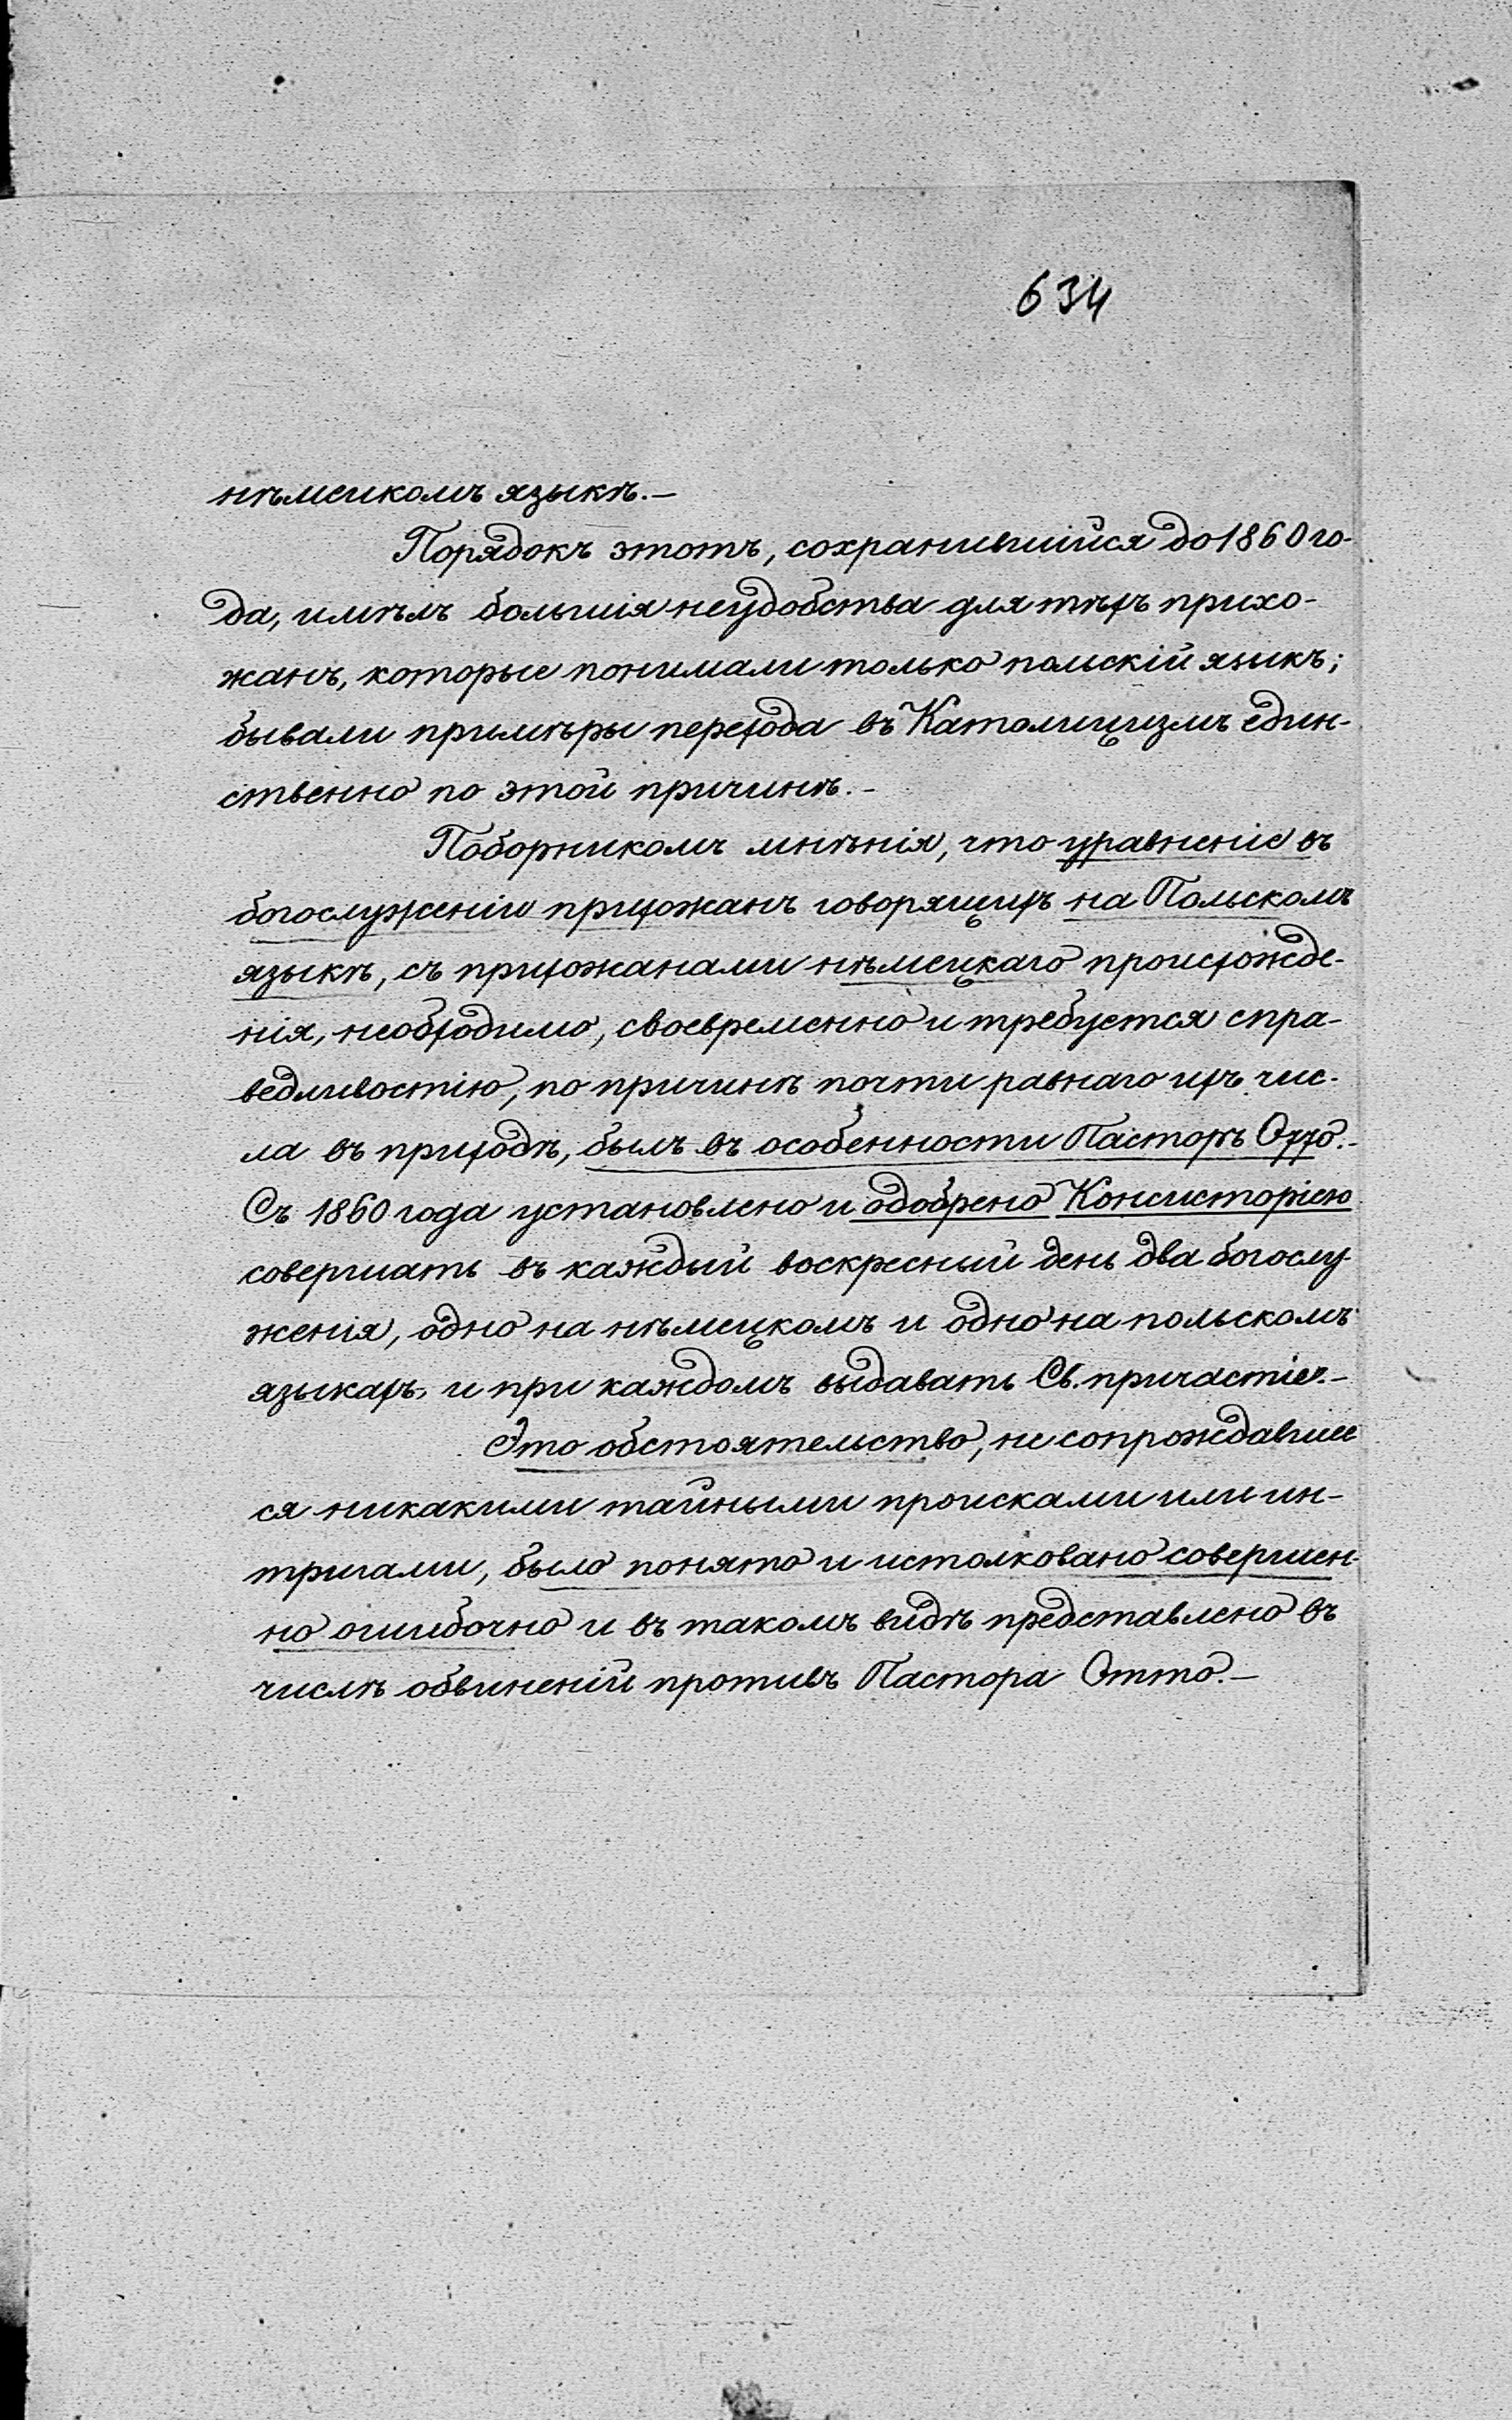 634
нѣмецкомъ языкѣ.—
Порядокъ этотъ, сохранившійся до 1860 го-
да, имѣлъ большія неудобства для тѣхъ прихо-
жанъ, которые понимали только польскій языкъ;
бывали примѣры перехода въ Католицизмъ един-
ственно по этой причинѣ.-
Поборникомъ мнѣнія, что уравненіе въ
богослуженіи прихожанъ говорящихъ на Польскомъ
языкѣ, съ прихожанами нѣмецкаго происхожде-
нія, необходимо, своевременно и требуется спра-
ведливостію, по причинѣ почти равнаго ихъ чис-
ла въ приходѣ, былъ въ особенности Пасторъ Отто.-
Съ 1860 года установлено и одобрено Консисторіею
совершать въ каждый воскресный день два богослу-
женія, одно на нѣмецкомъ и одно на польскомъ
языкахъ, и при каждомъ выдавать Св. причастіе.-
Это обстоятельство, не сопрождавшее
ся никакими тайными происками или ин-
тригами, было понято и истолковано совершен-
но ошибочно и въ такомъ видѣ представлено въ
числѣ обвиненій противъ Пастора Отто.—